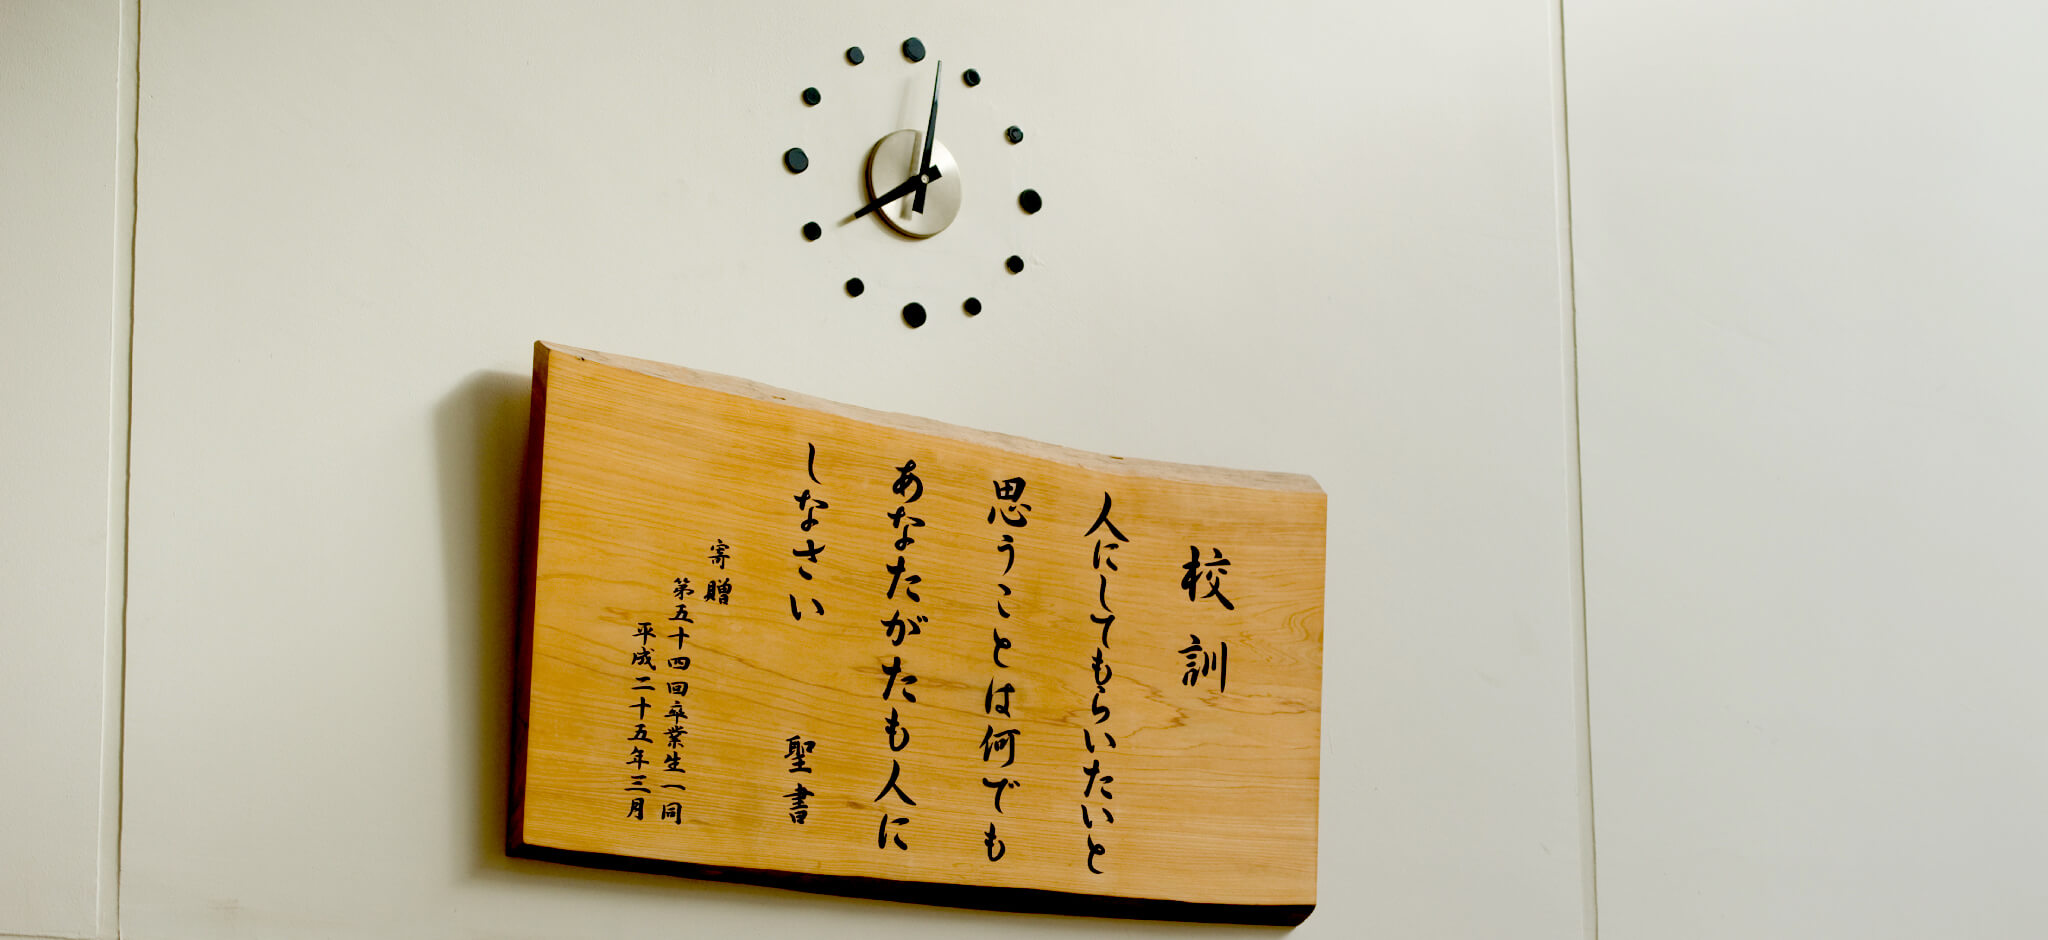 校訓
人にしてもらいたいと
思うことは何でも
あなたがたも人に
しなさい 聖書
寄贈
第五十四回卒業生一同
平成二十五年三月